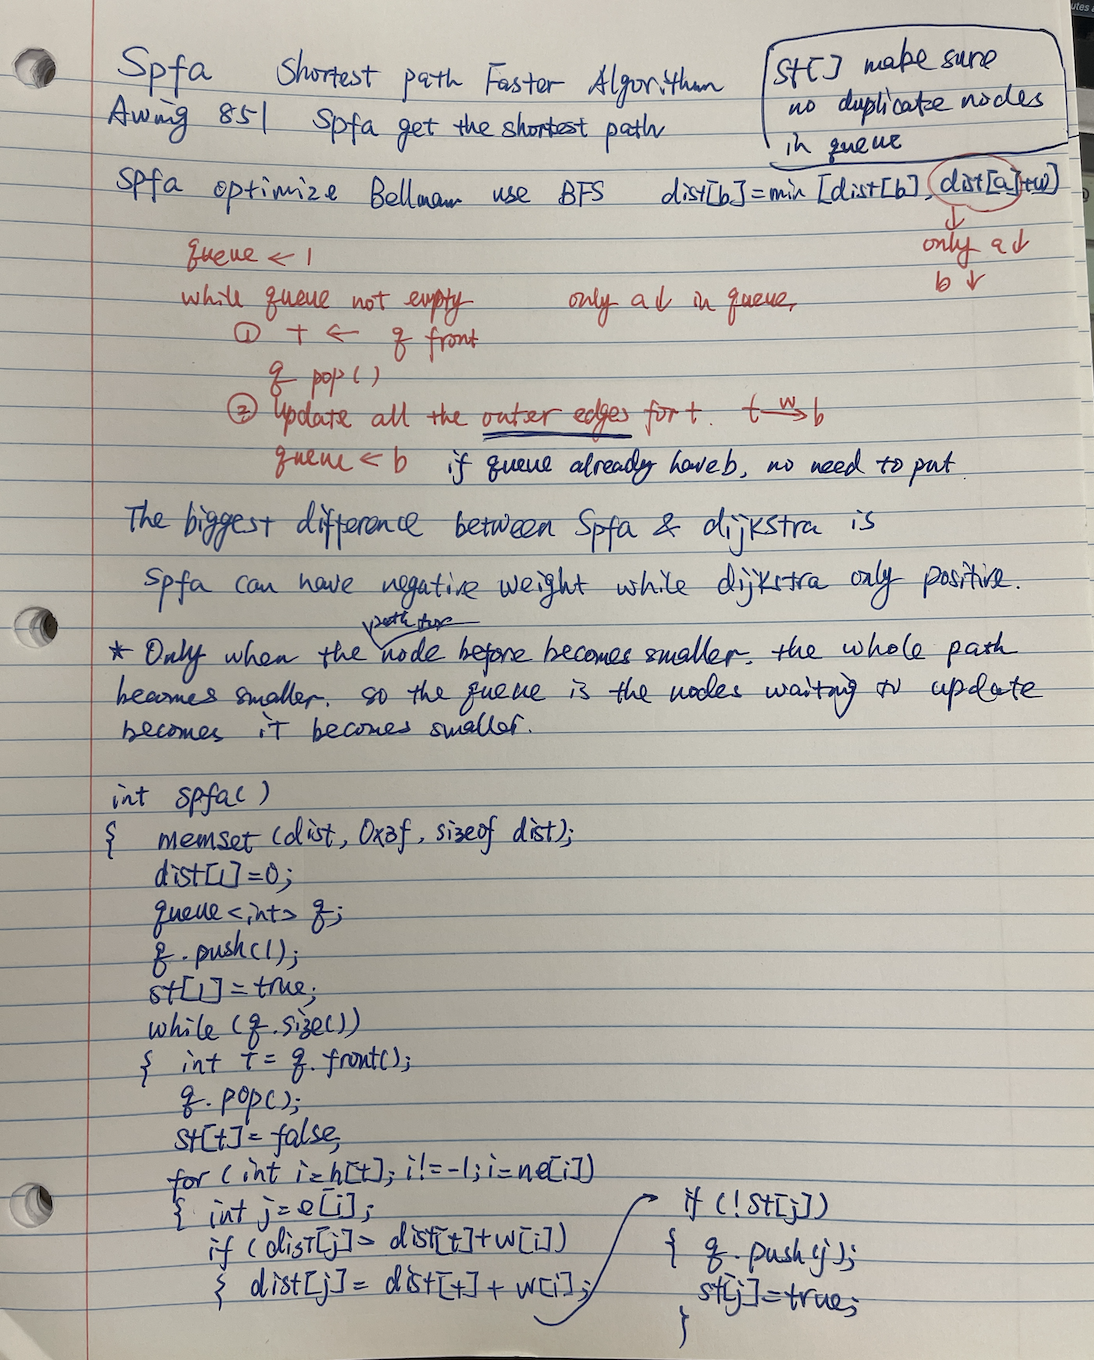 Spfa Shortest path Faster Algorithm
Awing 851 Spfa get the shortest path
st[] make sure
no duplicate nodes
in queue
Spfa optimize Bellman use BFS dist[b]=min[dist[b], dist[a]+w)
↓
only a↓
b ↓
queue ← 1
while queue not empty only a↓ in queue,
① t ← q front
q pop()
② update all the outser edges for t. t w→ b
queue ← b if queue already have b, no need to put.
The biggest difference between Spfa & dijkstra is
Spfa can have negative weight while dijkstra only positive.
* Only when the node before becomes smaller. the whole path
becomes smaller. so the queue is the nodes waiting to update
becomes it becomes smaller.
int spfa()
{ memset (dist, 0x3f, sizeof dist);
dist[1]=0;
queue<int> q;
q.push(1);
st[1]=true;
while (q.size())
{ int t= q.front();
q.pop();
st[t]=false;
for (int i=h[t]; i!=-1; i=ne[i])
{ int j=e[i];
if (dist[j]> dist[t]+w[i])
{ dist[j]= dist[t]+ w[i];
if (!st[j])
{ q.push(j);
st[j]=true;
}